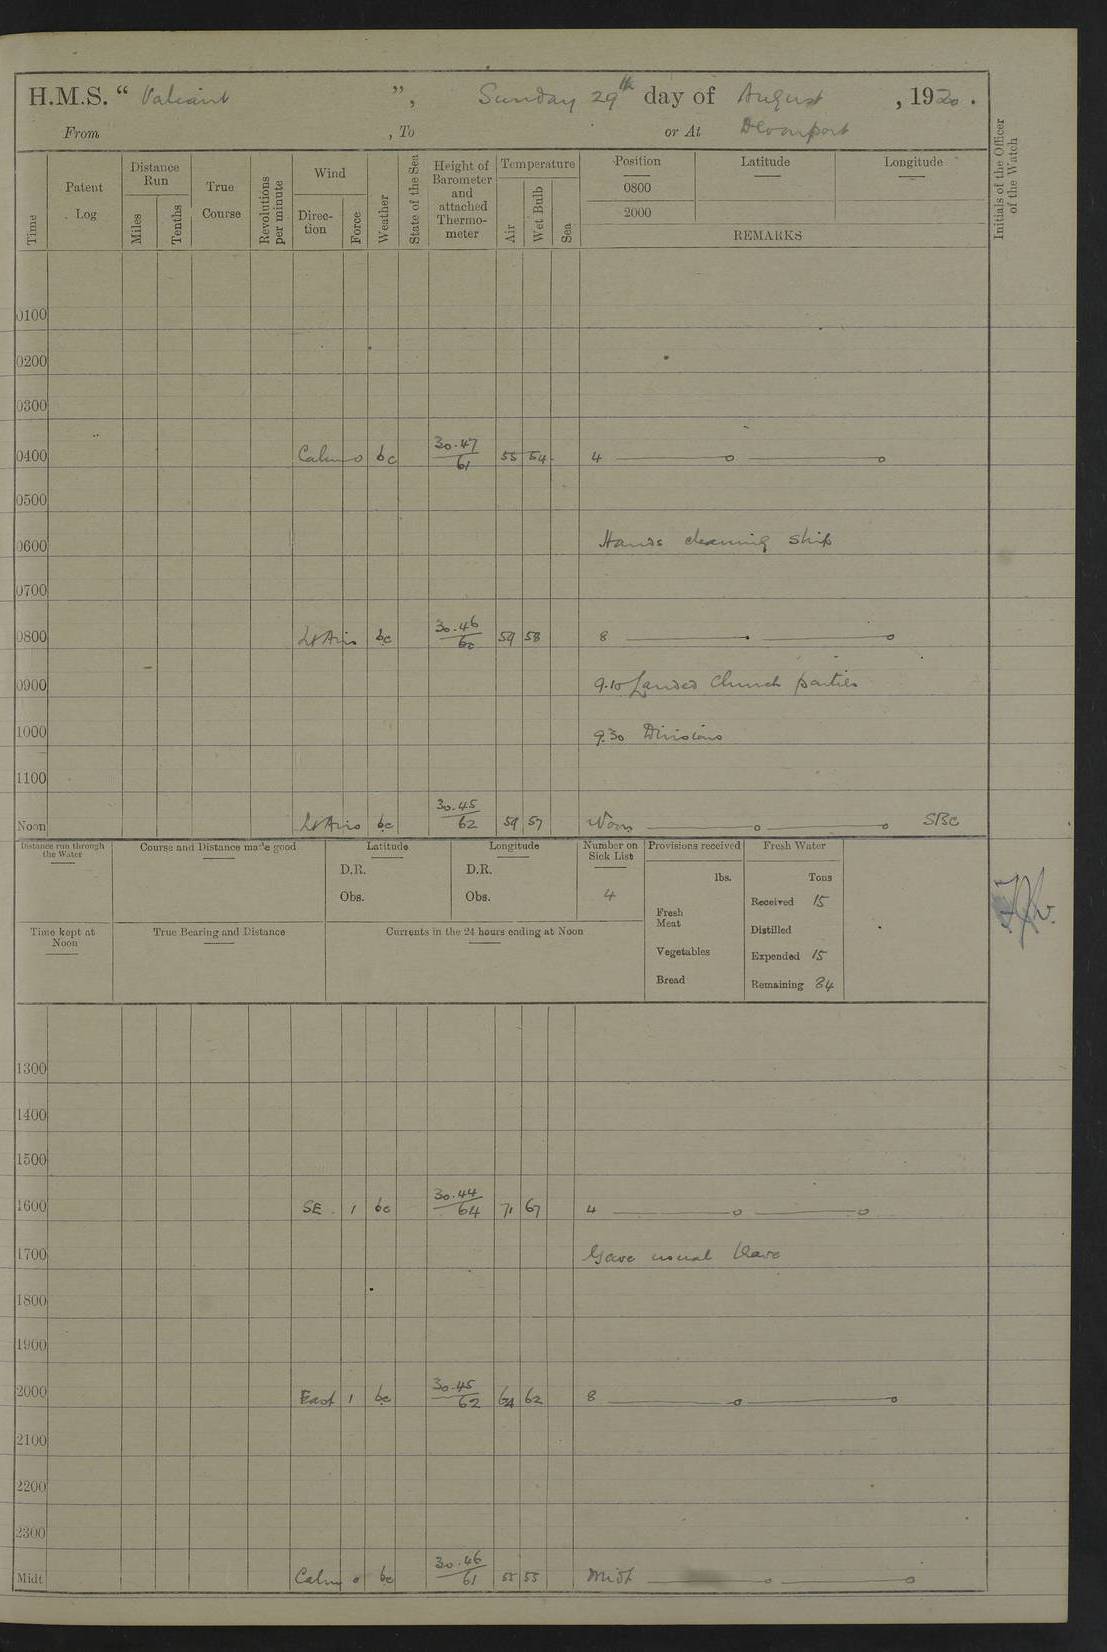 H.M.S. “ Valiant ”, Sunday 29th day of August , 1920 .
From , To or At Devonport
Time
Patent Log
Distance Run
Miles
Tenths
True Course
Revolutions per minute
Wind
Direc-tion
Force
Weather
State of the Sea
Height of Barometer and attached Thermo-meter
Temperature
Air
Wet Bulb
Sea
Position
0800
2000
Latitude
Longitude
REMARKS
Initials of the Officer of the Watch
0100
0200
0300
0400 Calm 0 bc 30.47/61 55 54 4
0500
0600 Hands cleaning ship
0700
0800 Lt Airs bc 30.46/60 59 58 8
0900 9.10 Landed Church parties
1000 9.30 Divisions
1100
Noon Lt Airs bc 30.45/62 59 57 Noon SBC
Distance run through the Water
Course and Distance made good
Latitude
D.R.
Obs.
Longitude
D.R.
Obs.
Number on Sick List
4
Provisions received
lbs.
Fresh Meat
Vegetables
Bread
Fresh Water
Tons
Received 15
Distilled
Expended 15
Remaining 84
Time kept at Noon
True Bearing and Distance
Currents in the 24 hours ending at Noon
1300
1400
1500
1600 SE 1 bc 30.44/64 71 67 4
1700 Gave usual leave
1800
1900
2000 East 1 bc 30.45/62 64 62 8
2100
2200
2300
Midt Calm 0 bc 30.46/61 55 55 Midt